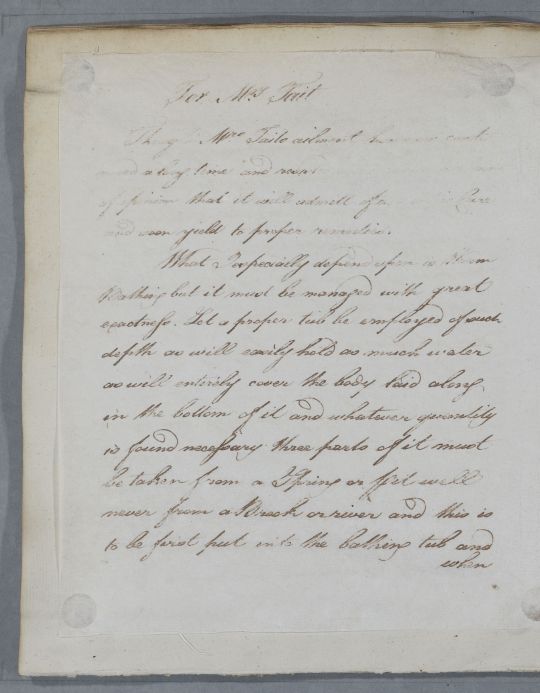 For Mrs Tait
Though Mrs Taits ailment has now conti
nued a long time and
of opinion that it will admit of a Cure
and soon yield to proper remedies.
What I especially depend upon is Warm
Bathing but it must be managed with great
exactness. Let a proper tub be employed of such
depth as will easily hold as much water
as will entirely cover the body laid along
in the bottom of it and whatever quantity
is found necessary three parts of it must
be taken from a Spring or pit well
never from a Brook or river and this is
to be first put into the bathing tub and
when